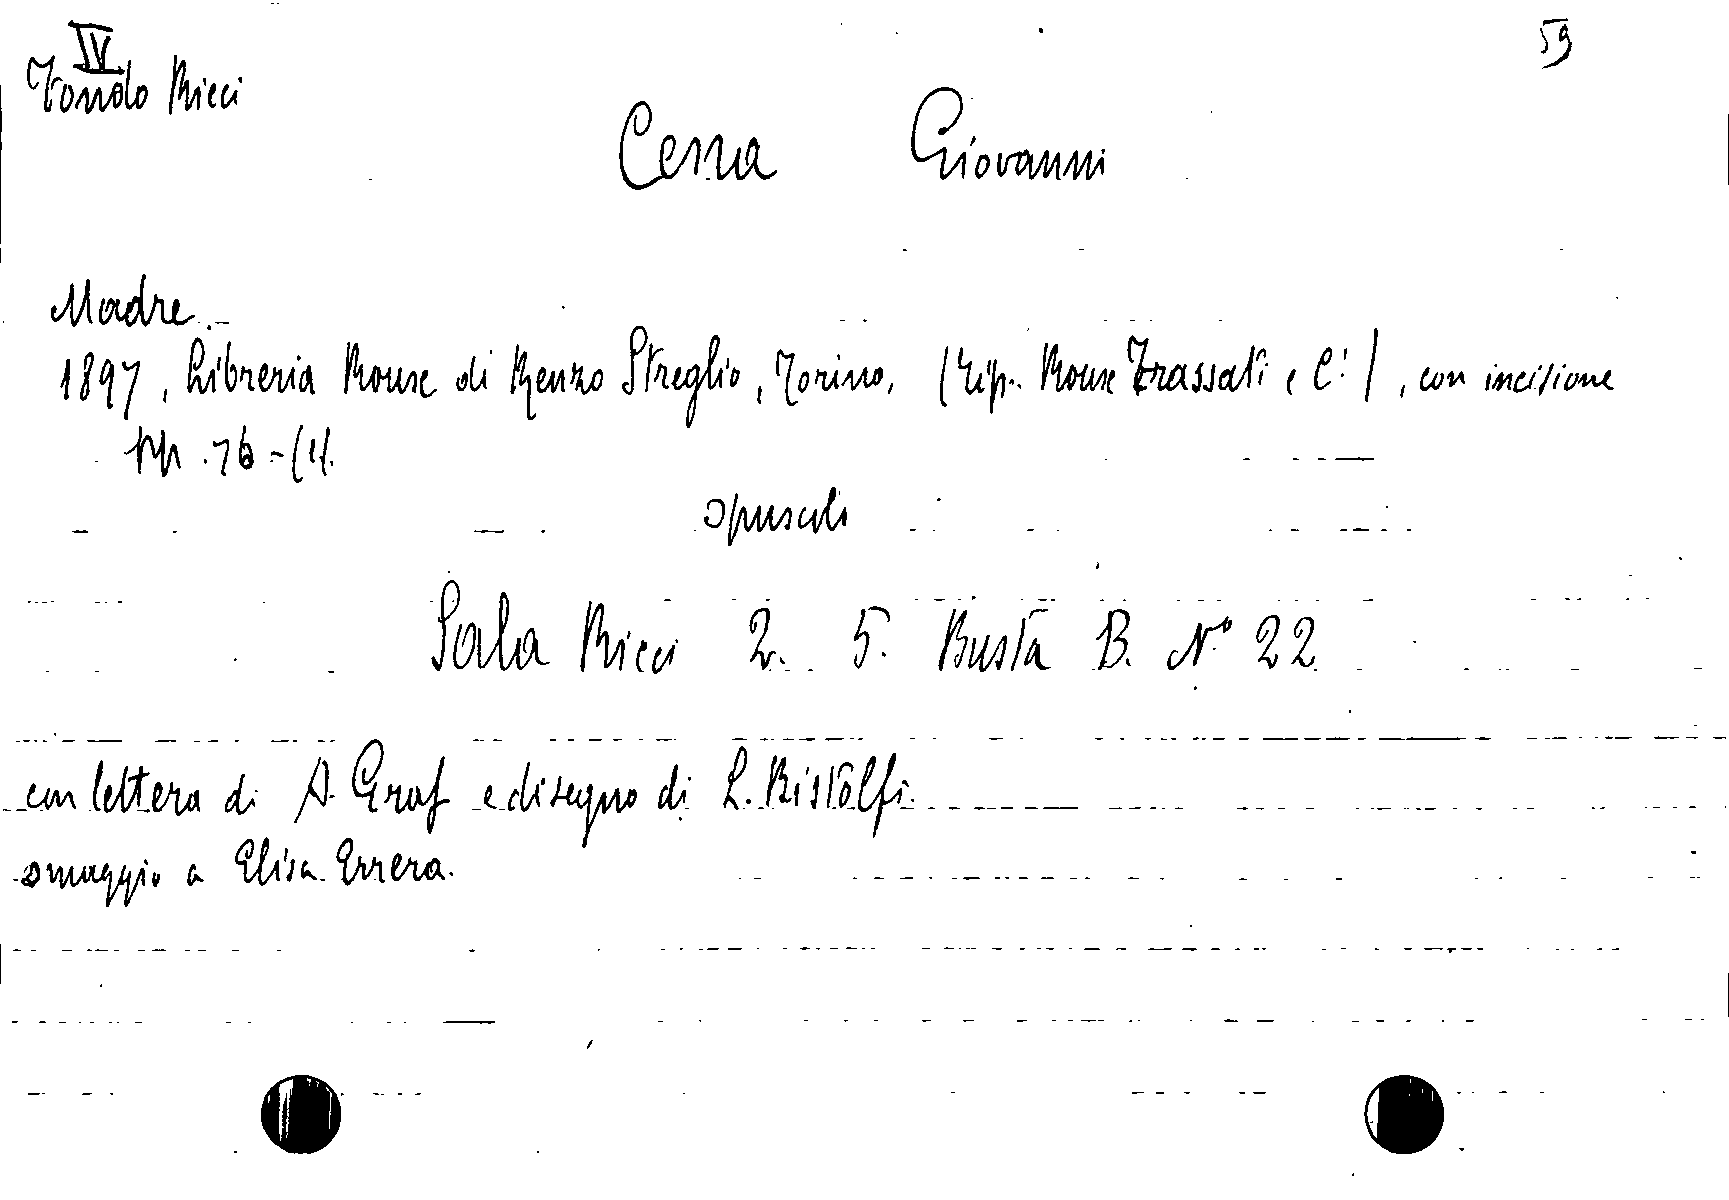 IV
59
Fondo Ricci
Cena Giovanni
Madre.
1897, Libreria Roux di Renzo Streglio, Torino, (Tip. Roux Frassati e C.), con incisione
pp. 76-(4).
opuscoli
Sala Ricci 2. 5. Busta B. N° 22
con lettera di A. Graf e disegno di L. Bistolfi.
omaggio a Elisa Errera.